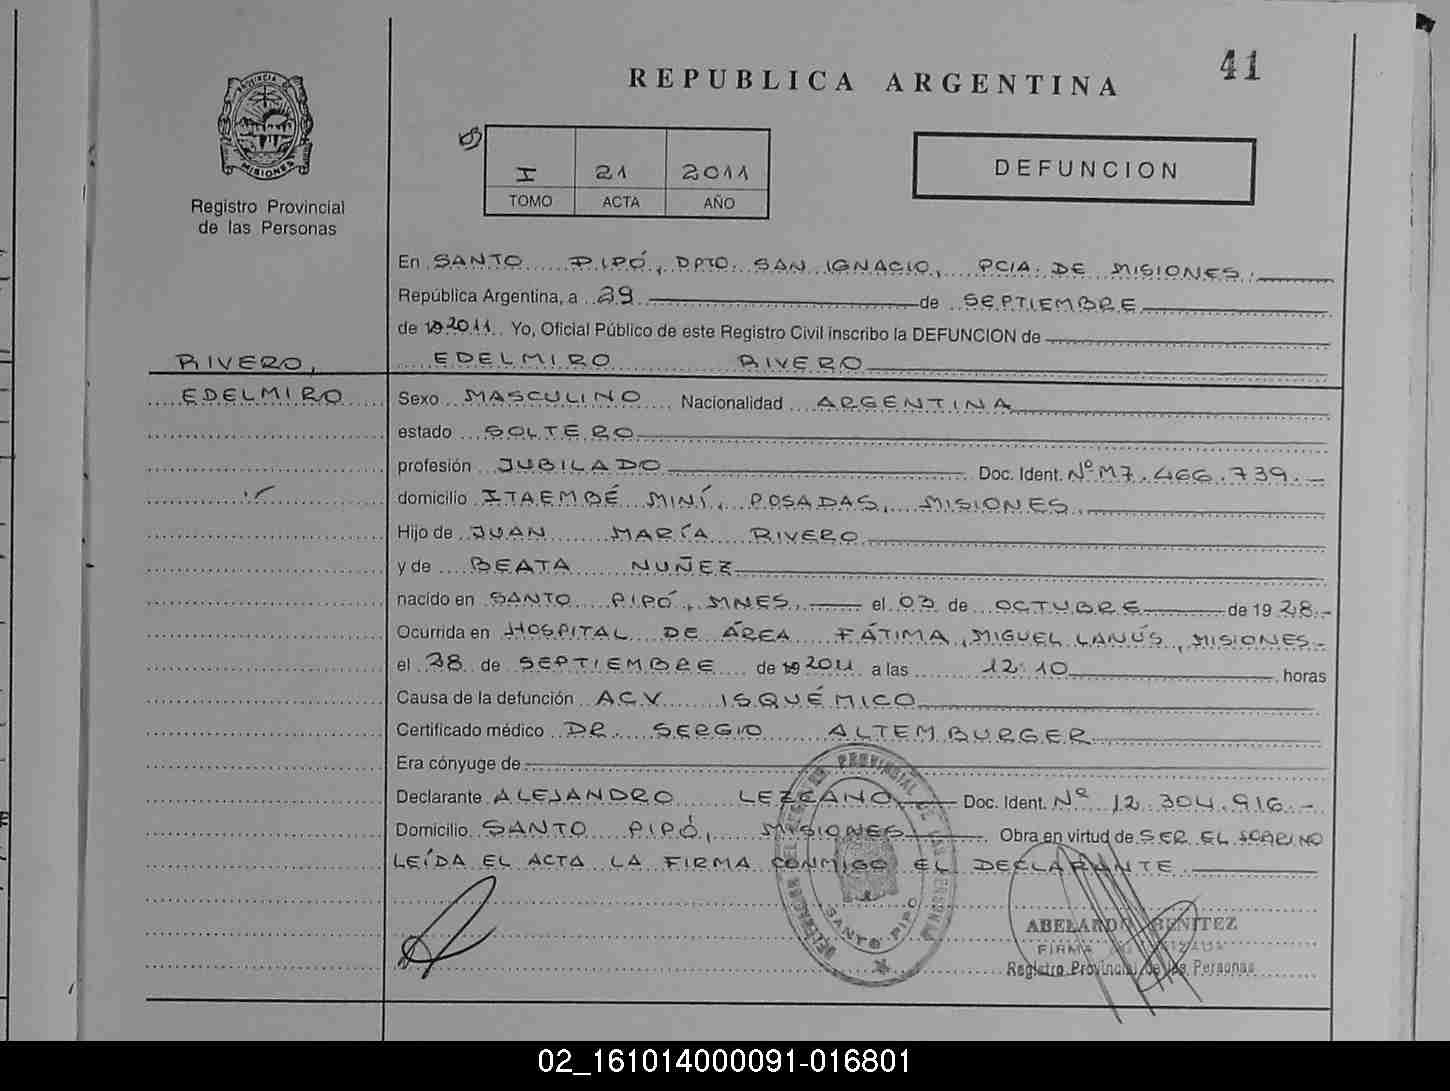 41
REPUBLICA ARGENTINA
PROVINCIA DE
MISIONES
Registro Provincial
de las Personas
I 21 2011
TOMO ACTA AÑO
DEFUNCION
En SANTO PIPÓ, DPTO. SAN IGNACIO, PCIA. DE MISIONES.
República Argentina, a 29 de SEPTIEMBRE
de 19 2011 Yo, Oficial Público de este Registro Civil inscribo la DEFUNCION de
RIVERO, EDELMIRO RIVERO
EDELMIRO Sexo MASCULINO Nacionalidad ARGENTINA
estado SOLTERO
profesión JUBILADO Doc. Ident. Nº M7.466.739.-
domicilio ITAEMBÉ MINÍ, POSADAS, MISIONES.
Hijo de JUAN MARÍA RIVERO
y de BEATA NUÑEZ
nacido en SANTO PIPÓ, MNES. el 03 de OCTUBRE de 1928.-
Ocurrida en HOSPITAL DE ÁREA FÁTIMA, MIGUEL LANÚS, MISIONES-
el 28 de SEPTIEMBRE de 19 2011 a las 12:10 horas
Causa de la defunción ACV ISQUÉMICO
Certificado médico DR. SERGIO ALTEMBURGER
Era cónyuge de
Declarante ALEJANDRO LEZCANO Doc. Ident. Nº 12.304.916.-
Domicilio SANTO PIPÓ, MISIONES Obra en virtud de SER EL SOBRINO
LEÍDA EL ACTA LA FIRMA CONMIGO EL DECLARANTE.
PROVINCIAL DE LAS PERSONAS
SANTO PIPÓ
ABELARDO BENITEZ
FIRMA AUTORIZADA
Registro Provincial de las Personas
02_161014000091-016801